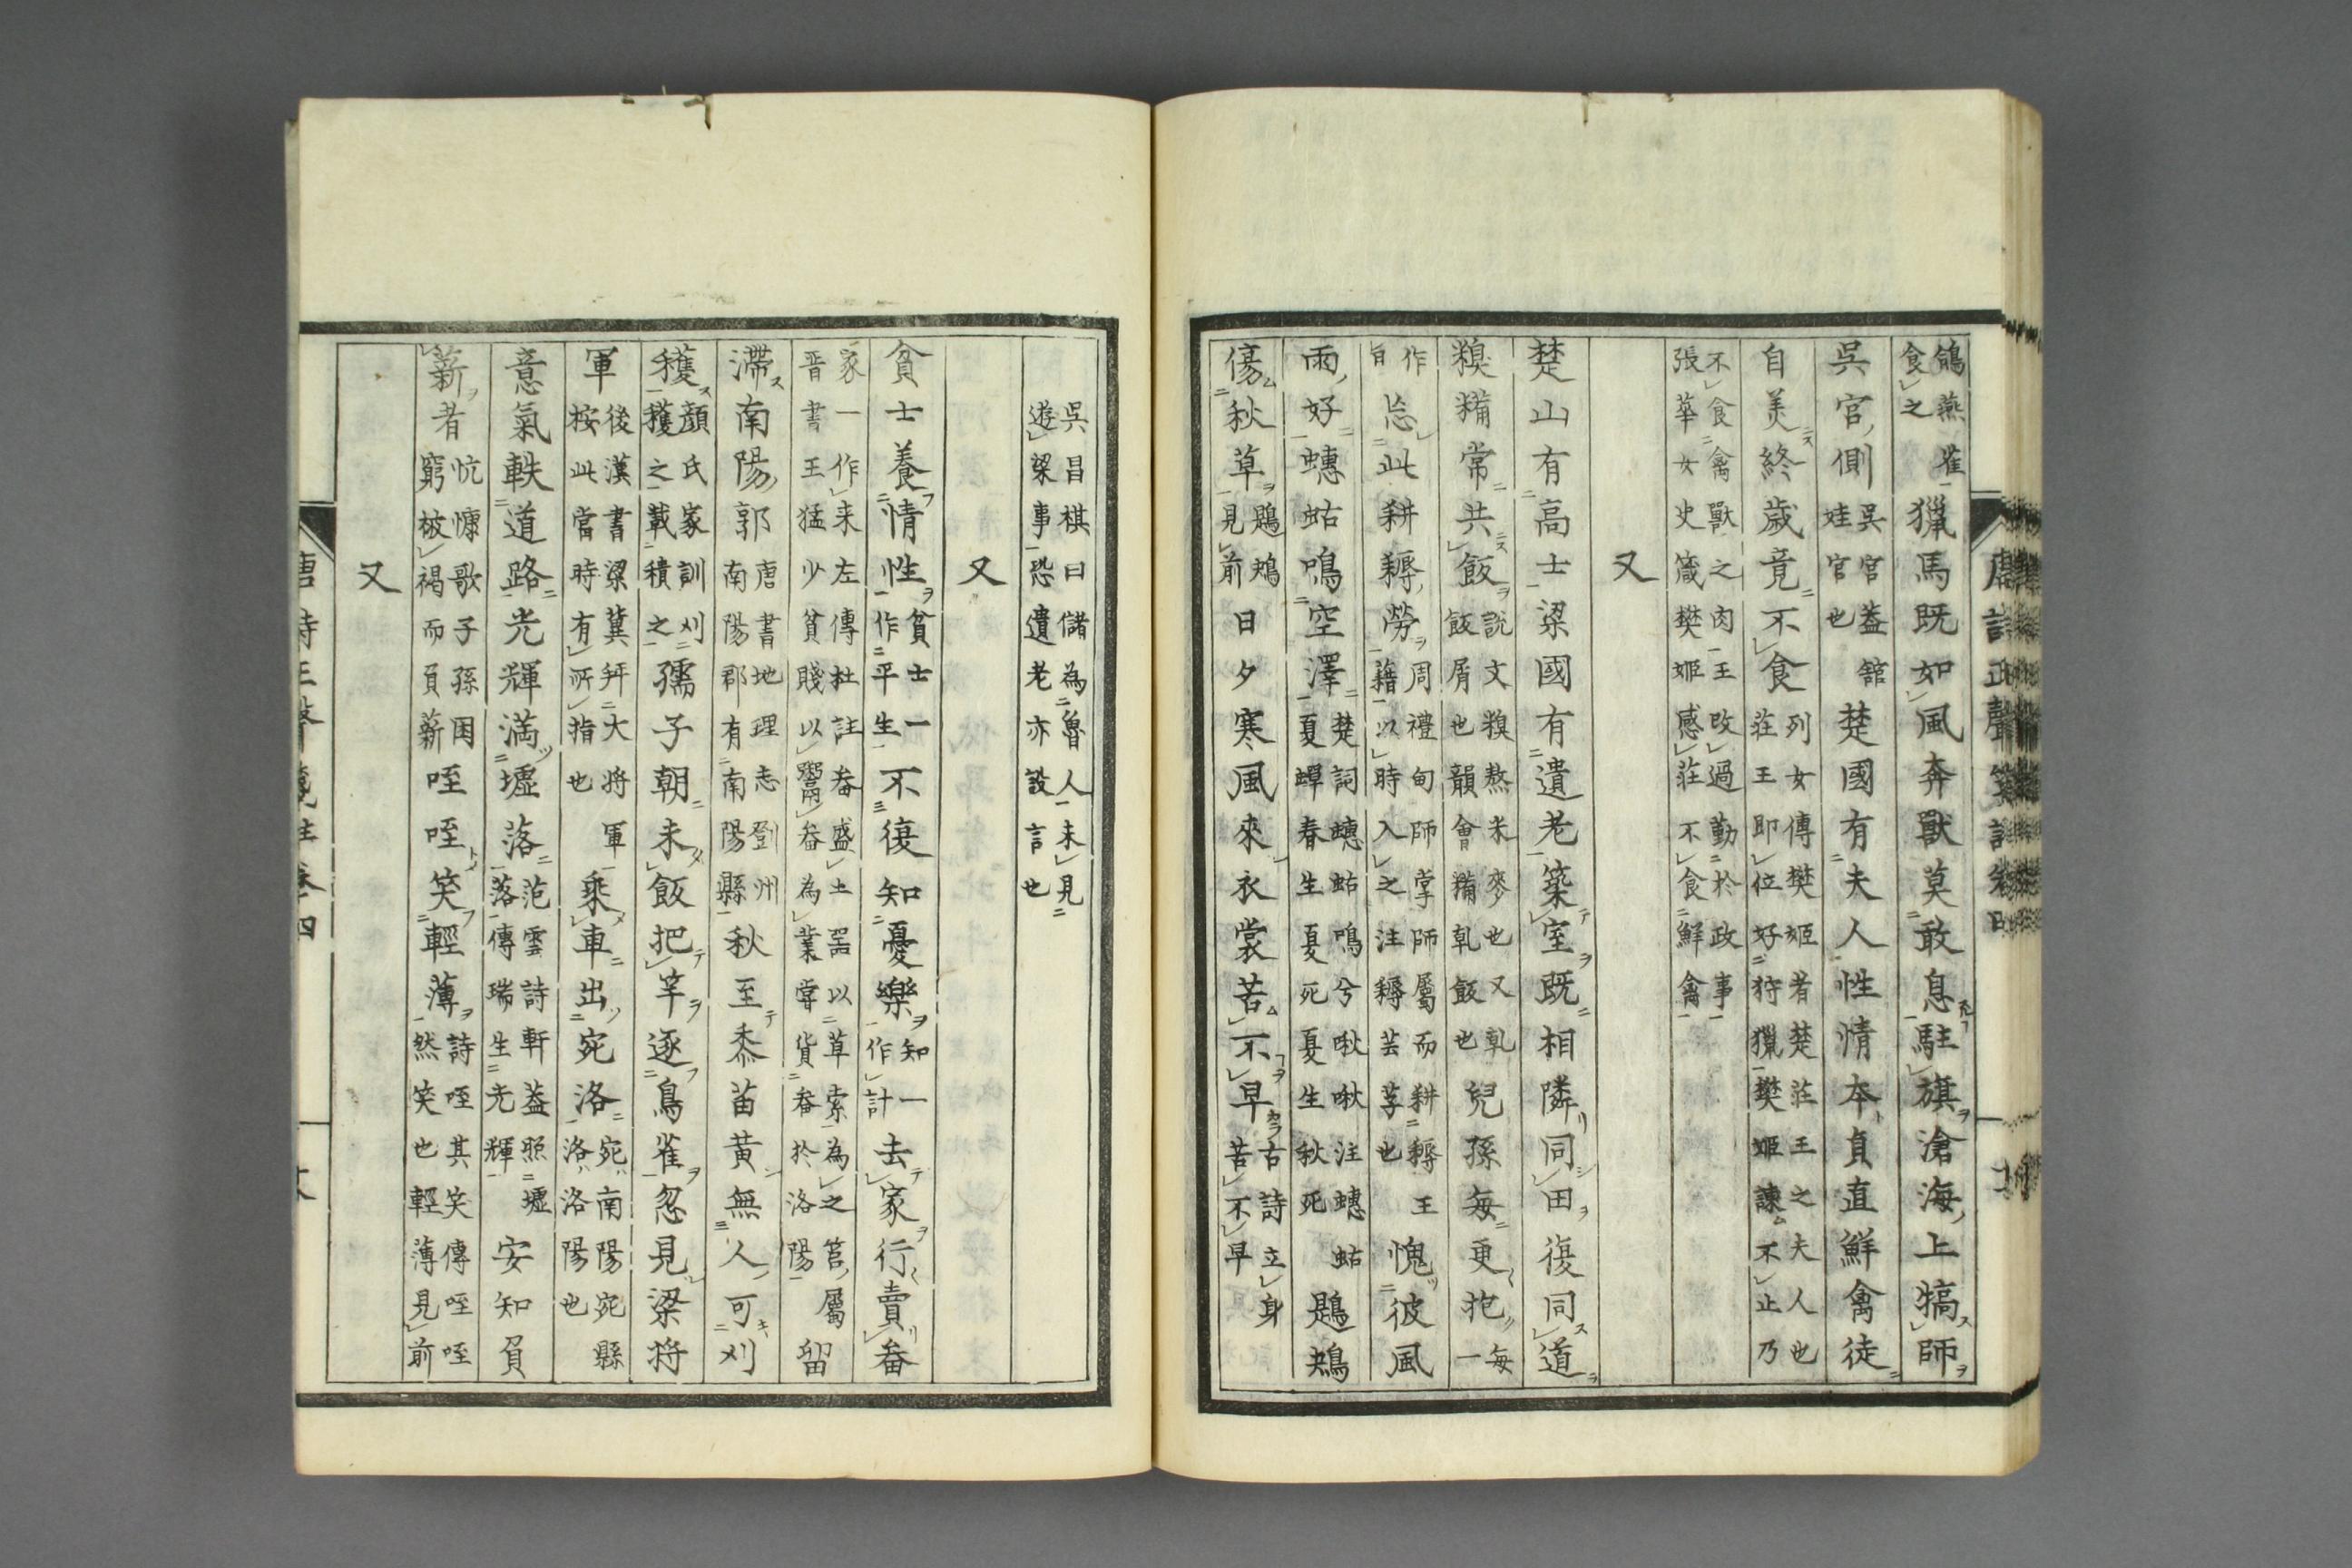 鴿燕雀
食之
獵馬既如風奔獸莫敢息駐旗滄海上犒師
吳宮側
吳宮蓋舘
娃宮宮也
楚國有夫人性情本貞直鮮禽徒
自美終歲竟不食
列女傳樊姬者楚莊王之夫人也
莊王即位好狩獵樊姬諫不止乃
不食禽獸之肉王改過勤於政事
張華女史箴樊姬感莊不食鮮禽
又
楚山有高士梁國有遺老築室既相隣同田復同道
糗糒常共飯
說文糗熬米麥也又乾
飯屑也韻會糒乾飯也
兒孫每更抱
每
一
作
旨
忘此耕耨勞
周禮甸師掌師屬而耕耨王
藉以時入之注耨芸芓也
愧彼風
雨好蟪蛄鳴空澤
楚詞蟪蛄鳴兮啾啾注蟪蛄
夏蟬春生夏死夏生秋死
鶗鴂
傷秋草
鶗鴂
見前
日夕寒風來衣裳苦不早
古詩立身
苦不早
吳昌棋曰儲為魯人未見
遊梁事恐遺老亦設言也
又
貧士養情性
貧士一
作平生
不復知憂樂
知一
作計
去家行賣畚
家一作来左傳杜註畚盛土器以草索為之筥屬
晋書王猛少貧賤以鬻畚為業嘗貨畚於洛陽
留
滯南陽郭
唐書地理志鄧州
南陽郡有南陽縣
秋至黍苗黃無人可刈
穫
顏氏家訓刈
穫之載積之
孺子朝未飯把竿逐鳥雀忽見梁將
軍
後漢書梁冀拜大将軍
按此當時有所指也
乘車出宛洛
宛南陽宛縣
洛洛陽也
意氣軼道路光輝滿墟落
范雲詩軒蓋照墟
落傳瑞生光輝
安知負
薪者
忼慷歌子孫困
窮被褐而負薪
咥咥笑輕薄
詩咥其笑傳咥咥
然笑也輕薄見前
又